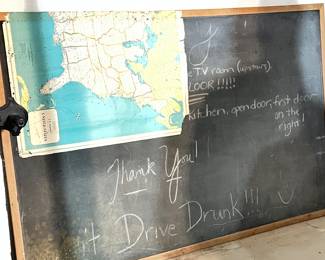 TV room (upstairs)
LOOK!!!!!
kitchen, open door, first door
on the
right!
Thank You!
Drive Drunk!!!